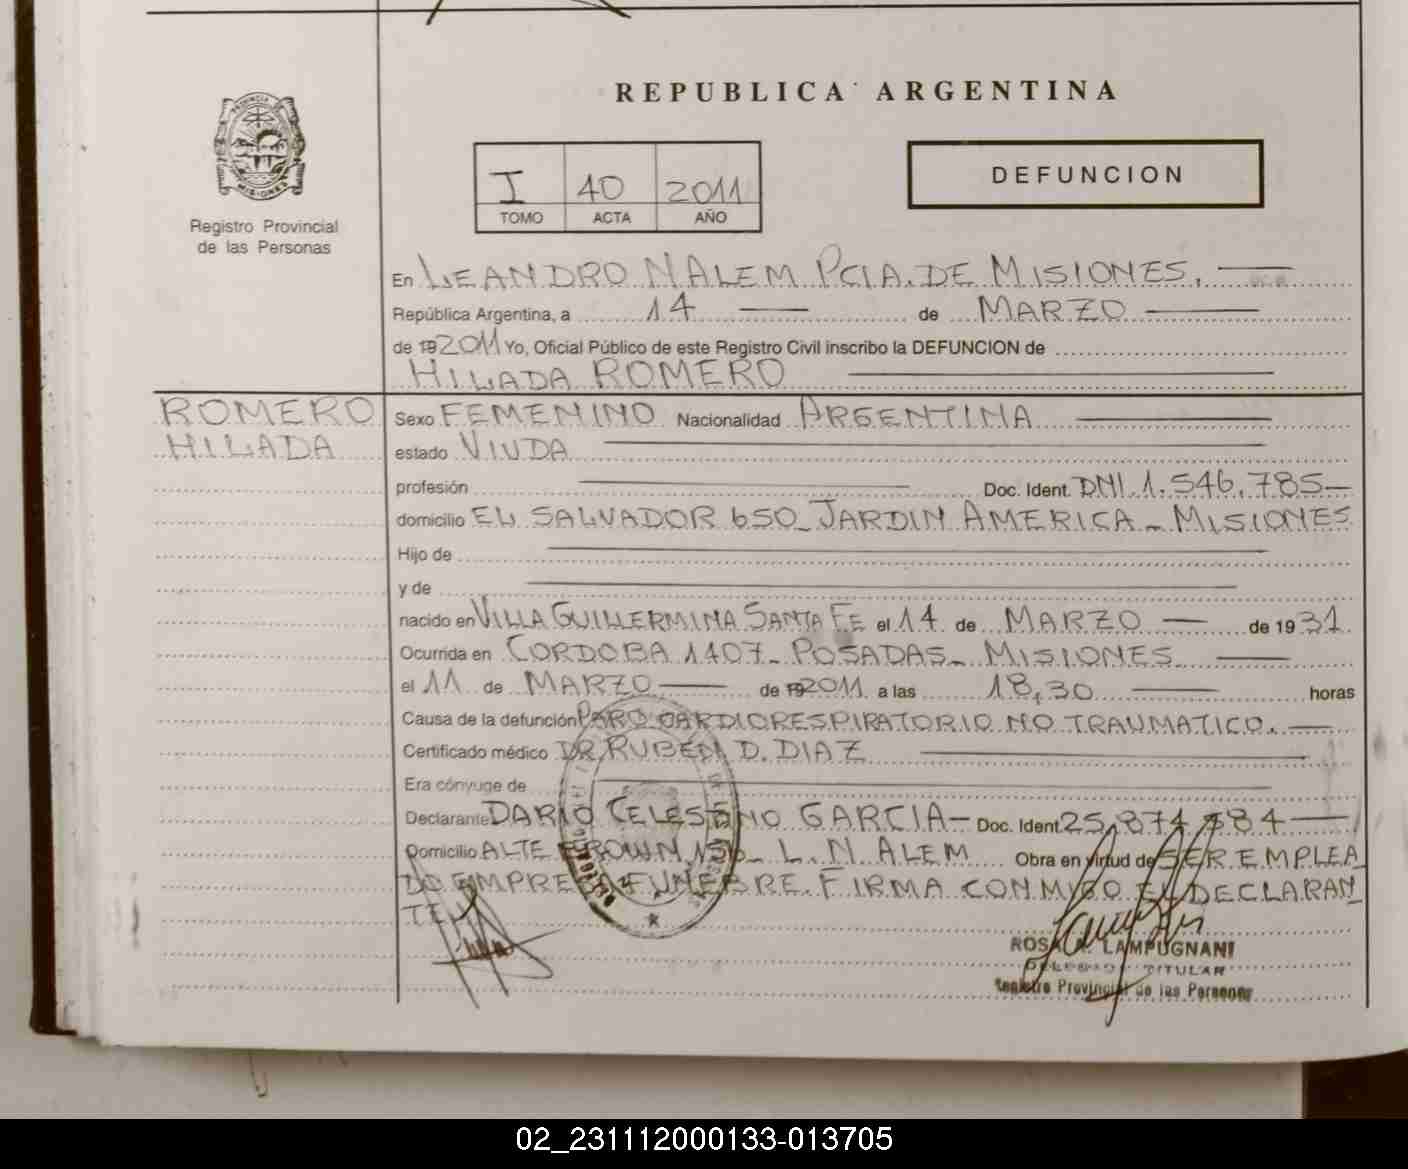 REPUBLICA ARGENTINA
PROVINCIA DE
MISIONES
Registro Provincial
de las Personas
I 40 2011
TOMO ACTA AÑO
DEFUNCION
En LEANDRO N ALEM PCIA. DE MISIONES.
República Argentina, a 14 de MARZO
de 19 2011 Yo, Oficial Público de este Registro Civil inscribo la DEFUNCION de
HILADA ROMERO
ROMERO
HILADA
Sexo FEMENINO Nacionalidad ARGENTINA
estado VIUDA
profesión Doc. Ident. DNI 1.546.785
domicilio EL SALVADOR 650_ JARDIN AMERICA - MISIONES
Hijo de
y de
nacido en VILLA GUILLERMINA SANTA FE el 14 de MARZO de 19 31
Ocurrida en CORDOBA 1407- POSADAS- MISIONES
el 11 de MARZO de 19 2011 a las 18,30 horas
Causa de la defunción PARO CARDIORESPIRATORIO NO TRAUMATICO.
Certificado médico DR RUBEN D. DIAZ
Era cónyuge de
Declarante DARIO CELESTINO GARCIA- Doc. Ident. 25.874.784
Domicilio ALTE BROWN 156_ L. N ALEM Obra en virtud de SER EMPLEA
DO EMPRESA FUNEBRE. FIRMA CONMIGO EL DECLARAN_
TE
ROSA A. LAMPUGNANI
DELEGADA TITULAR
Registro Provincial de las Personas
02_231112000133-013705